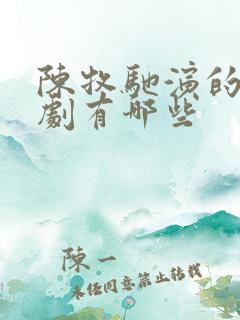 陳牧馳演的
劇有哪些
陳一
未经同意禁止转载